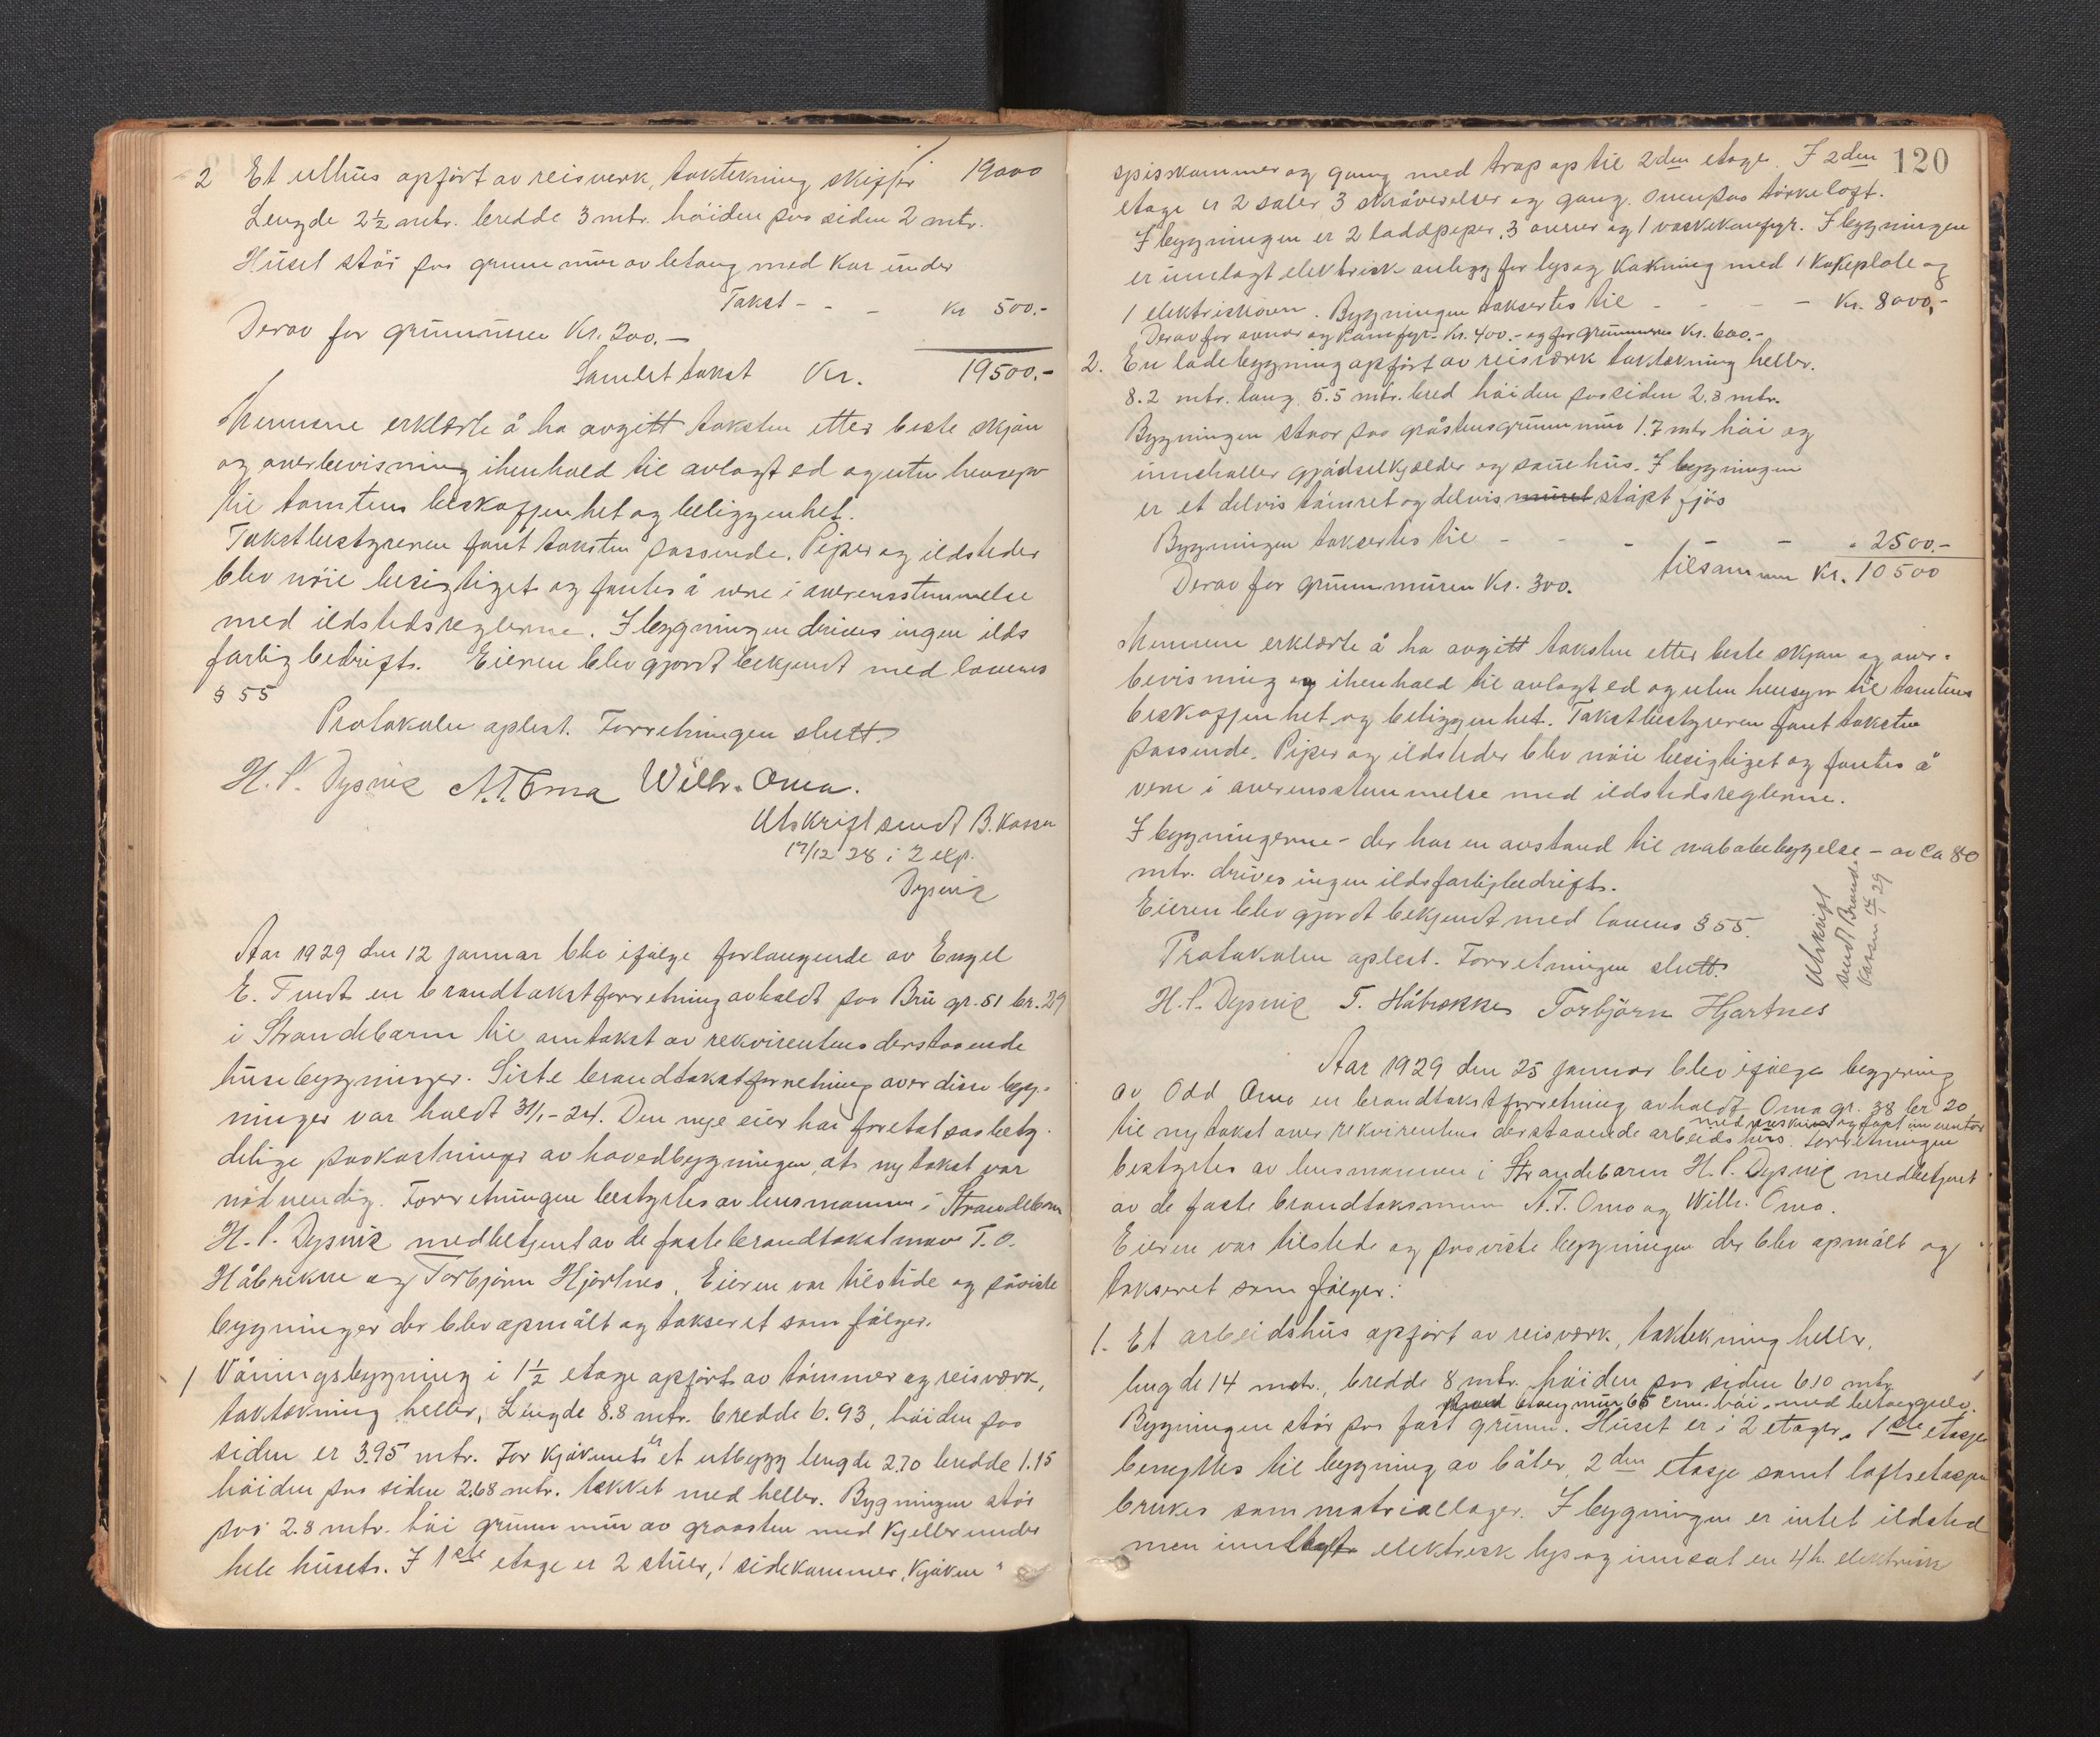 2 Et uthus opført av reisverk, taktekning skiffer 19000
Lengde 2½ mtr. bredde 3 mtr. høiden paa siden 2 mtr.
Huset står paa grunnmur av betong med kar under
Takst - - - Kr 500.-
Derav for grunmuren Kr. 200.-
Samlet takst Kr. 19500.-
Mennene erklærte å ha avgitt taksten etter beste skjøn
og overbevisning ihenhold til avlagt ed og uten hensyn
til tomtens beskaffenhet og beliggenhet.
Takstbestyreren fant taksten passende. Piper og ildsteder
blev nøie besigtiget og fantes å være i overensstemmelse
med ildstedsreglerne. I bygningen drives ingen ilds
farlig bedrift. Eieren blev gjordt bekjendt med lovens
§ 55
Protokolen oplest. Forretningen slutt.
H. P. Dysvik A.T. Oma Wilh. Oma.
Utskrift sendt B. kassen
17/12 28 i 2 exp.
Dysvik
Aar 1929 den 12 januar blev ifølge forlangende av Engel
E. Tundt en brandtakstforretning avholdt paa Bru gr. 51 br. 29
i Strandebarm til omtakst av rekvirentens derstaaende
husebygninger. Siste brandtakstforretning over disse byg-
ninger var holdt 31/1-24. Den nye eier har foretat saa bety-
delige paakostninger av hovedbygningen, at ny takst var
nødvendig. Forretningen bestyrtes av lensmannen i Strandebarm
H. P. Dysvik medbetjent av de faste brandtakstmenn T. O.
Håbrekke og Torbjørn Hjartnes. Eieren var tilstede og påviste
bygninger der blev opmålt og taksert som følger.
1 Våningsbygning i 1½ etage opført av tømmer og reisværk,
taktekning heller, Lengde 8.8 mtr. bredde 6.93, høiden paa
siden er 3.95 mtr. For kjøkenet er et utbygg lengde 2.70 bredde 1.15
høiden paa siden 2.68 mtr. tekket med heller. Bygningen står
paa 2.8 mtr. høi grunnmur av graasten med kjeller under
hele huset. I 1ste etage er 2 stuer, 1 sidekammer, kjøken
120
spisskammer og gang med trap op til 2den etage. I 2den
etage er 2 saler 3 skråverelser og gang. Ovenpaa tørkeloft.
I bygningen er 2 loddpiper, 3 ovner og 1 vaskekomfyr. I bygningen
er innlagt elektrisk anlegg for lys og kokning med 1 kokeplate og
1 elektrisk ovn. Bygningen taksertes til - - - - Kr. 8000,-
Derav for ovner og komfyr Kr. 400.- og for grunmuren Kr. 600.-
2. En ladebygning opført av reisværk taktekning heller.
8.2 mtr. lang 5.5 mtr. bred høiden paa siden 2.8 mtr.
Bygningen staar paa gråstensgrunnmur 1.7 mtr høi og
inneholler gjødselkjælder og sauehus. I bygningen
er et delvis tømret og delvis muret støpt fjøs
Bygningen taksertes til - - - - - " 2500.-
Derav for grunnmuren Kr. 300. tilsammen Kr. 10500
Mennene erklærte å ha avgitt taksten etter beste skjøn og over-
bevisning og ihenhold til avlagt ed og uten hensyn til tomtens
beskaffenhet og beliggenhet. Takstbestyreren fant taksten
passende. Piper og ildsteder blev nøie besigtiget og fantes å
være i overensstemmelse med ildstedsreglerne.
I bygningerne - der har en avstand til nabobebyggelse - av ca 80
mtr. drives ingen ildsfarlig bedrift.
Eieren blev gjordt bekjendt med lovens § 55.
Protokolen oplest. Forretningen slutt.
Utskrift
sendt Brand-
kassen 17/1 29
H. P. Dysvik T. Håbrekke Torbjörn Hjartnes
Aar 1929 den 25 januar blev ifølge begjering
av Odd Oma en brandtakstforretning avholdt Oma gr. 38 br 20
med maskiner og fast inventar
til ny takst over rekvirentens derstaaende arbeidshus. Forretningen
bestyrtes av lensmannen i Strandebarm H. P. Dysvik medbetjent
av de faste brandtaksmenn A.T. Oma og Wilh. Oma.
Eieren var tilstede og paaviste bygningen der blev opmålt og
takseret som følger:
1. Et arbeidshus opført av reisværk, taktekning heller,
lengde 14 mtr., bredde 8 mtr. høiden paa siden 6.10 mtr
betong mur 65 cm. høi, med betonggulv.
Bygningen står paa fast grunn. Huset er i 2 etager. 1ste etasje
benyttes til bygning av båter, 2den etasje samt loftsetasjen
brukes som matriallager. I bygningen er intet ildsted
men innlagt elektrisk lys og innsat en 4 h. elektrisk